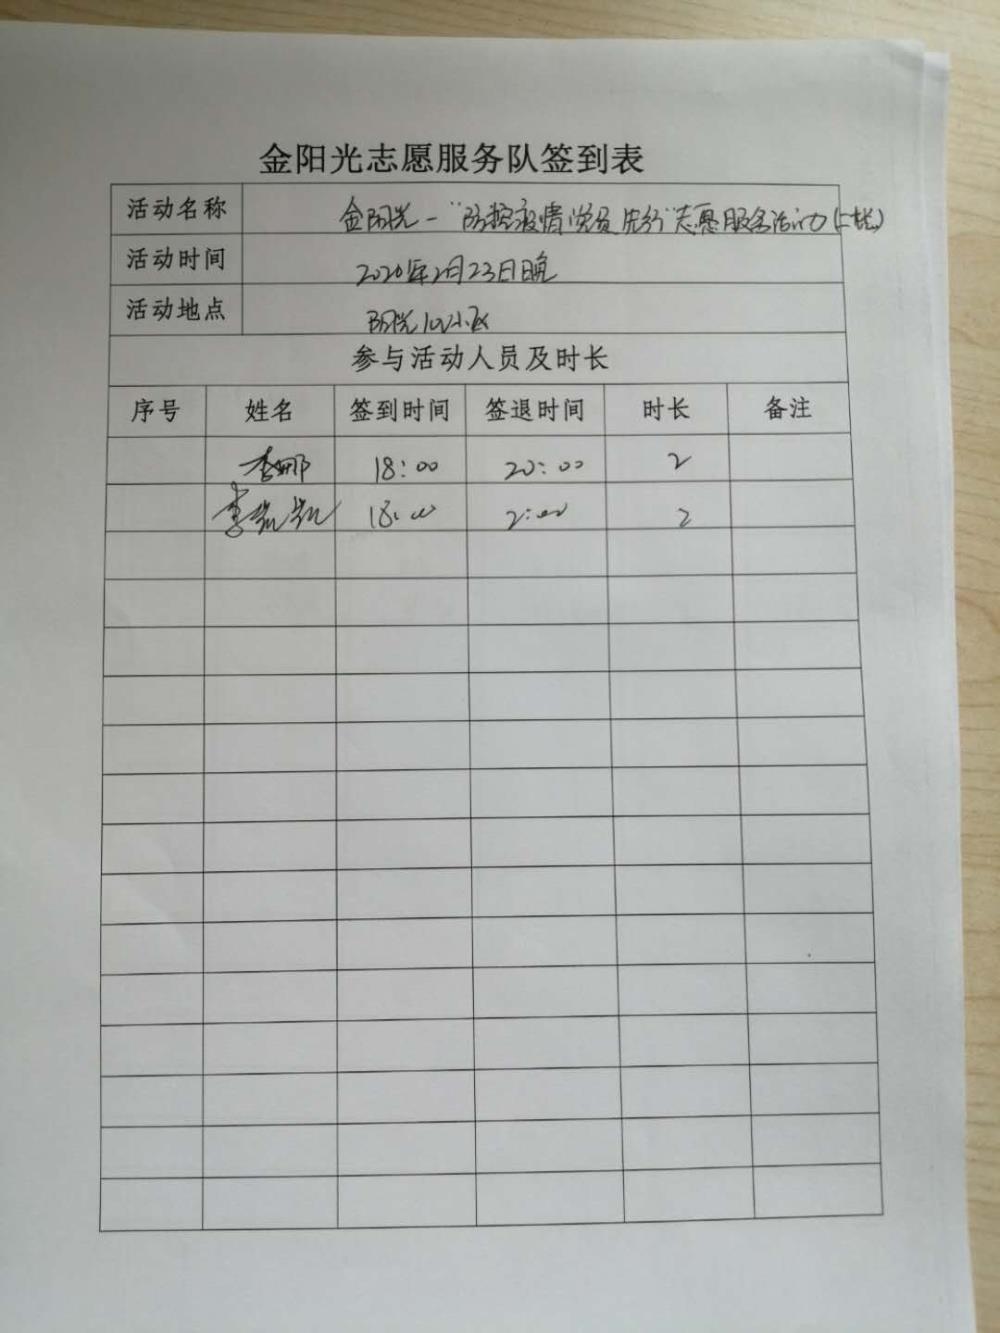 金阳光志愿服务队签到表
活动名称 金阳光一“防控疫情党员先行”志愿服务活动
活动时间 2020年2月23日晚
活动地点 阳光100小区
参与活动人员及时长
序号 姓名 签到时间 签退时间 时长 备注
李娜 18:00 20:00 2
李 18:00 2:00 2